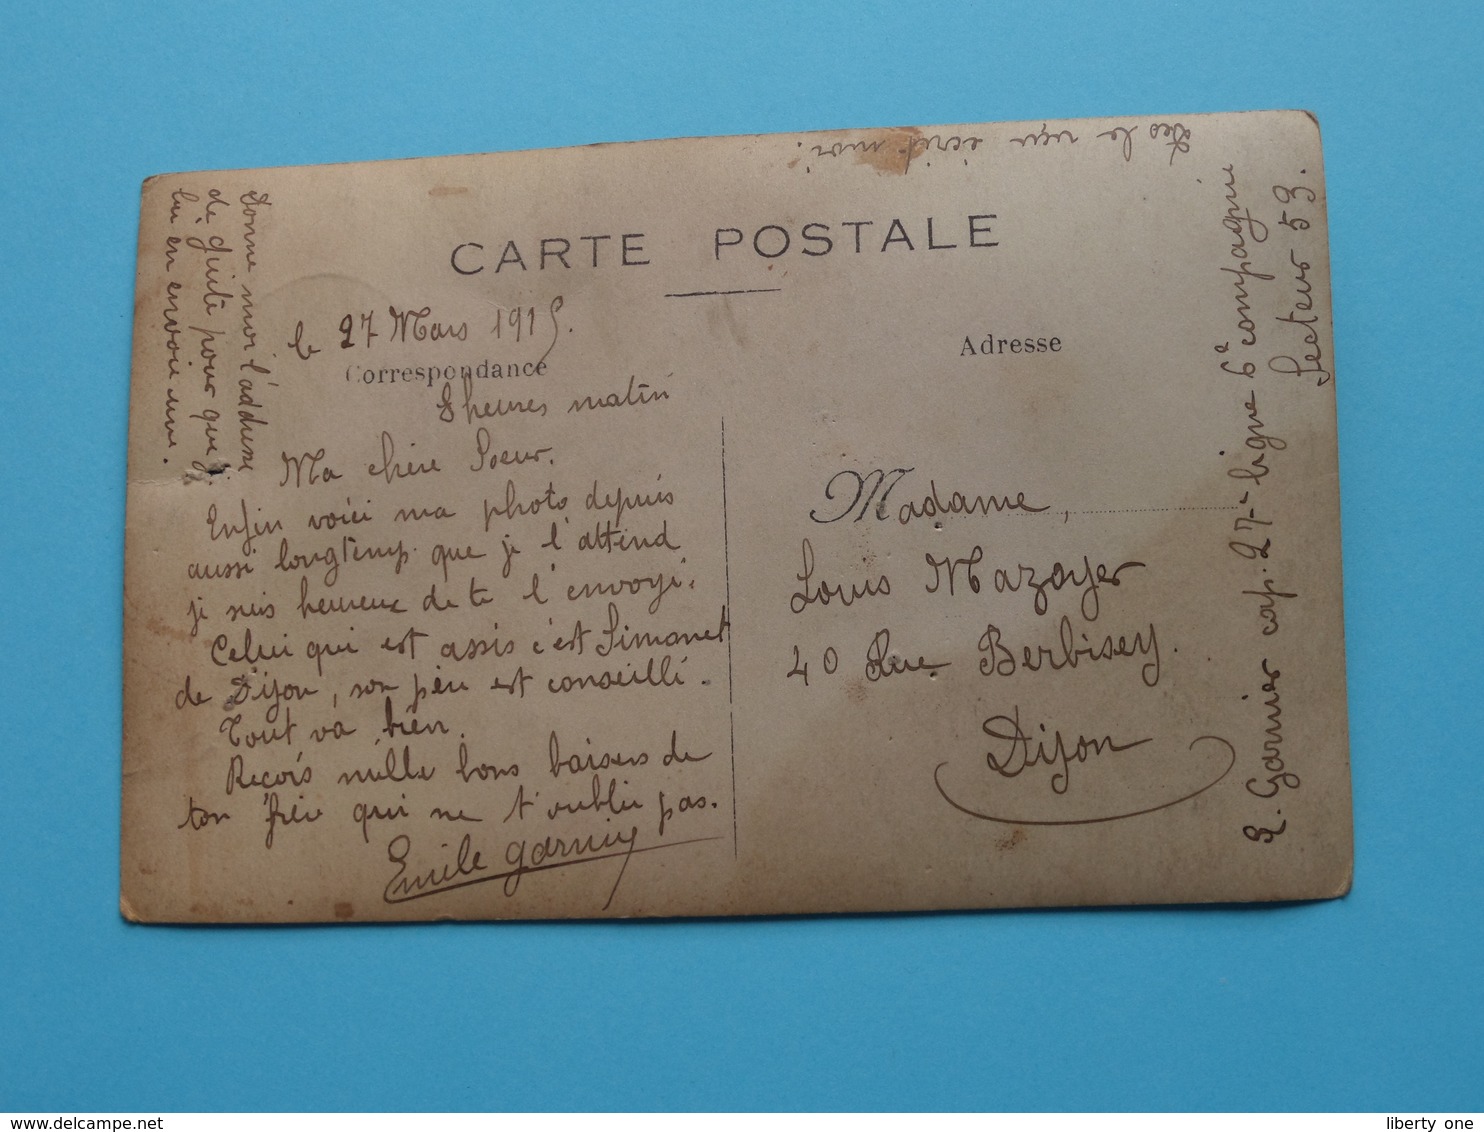 CARTE POSTALE
le 27 Mars 1915.
Correspondance
8 heures matin
Ma chère Soeur.
Enfin voici ma photo depuis
aussi longtemp que je l'attend
je suis heureux de te l'envoyé.
Celui qui est assis c'est Simonet
de Dijon, son père est conseillé.
Tout va bien.
Reçois mille bons baisers de
ton frère qui ne t'oublie pas.
Emile Garnier
Donne moi l'addresse
de guite pour que je
lui en envoie une.
Adresse
Madame,
Louis Mazoyer
40 Rue Berbisey.
Dijon
E. Garnier cap. 27e ligne 6e compagnie
Secteur 53.
Des le reçu écrit moi.
www.delcampe.net
liberty one